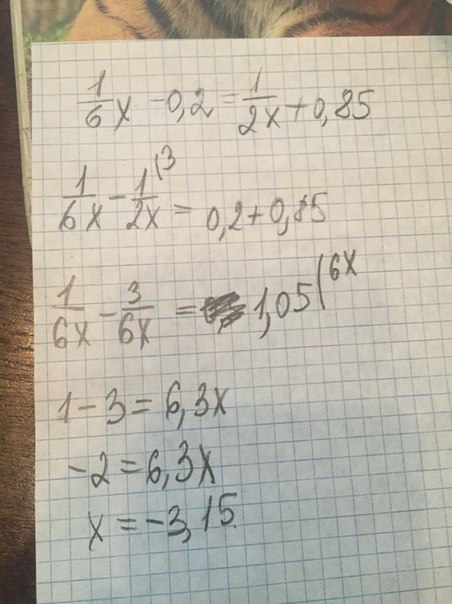 1/6x - 0,2 = 1/2x + 0,85
1/6x - 1/2x (3 = 0,2 + 0,85
1/6x - 3/6x = 1,05 | 6x
1 - 3 = 6,3x
-2 = 6,3x
x = -3,15